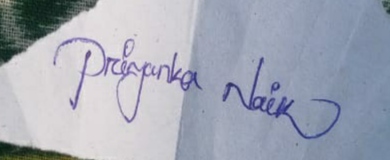 Priyanka Naik